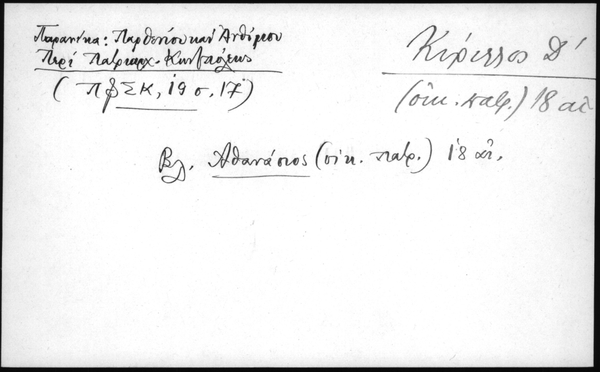 Παρανίκα: Παρθενίου και Ανθίμου
Περί Πατριαρχ. Κων/πόλεως
(ΠβΣΚ, 19 σ. 17)
Κύριλλος Δ΄
(οικ. πατρ.) 18 αι
Βλ. Αθανάσιος (οικ. πατρ.) 18 αι.